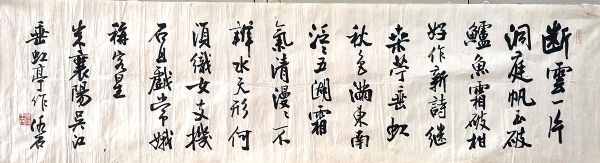 断雲一片
洞庭帆玉破
鱸魚霜破柑
好作新詩継
桑苧垂虹
秋色満東南
泛〻五湖霜
氣清漫〻不
辨水天形何
須織女支機
石且戲常娥
稱客星
米襄陽吴江
垂虹亭作